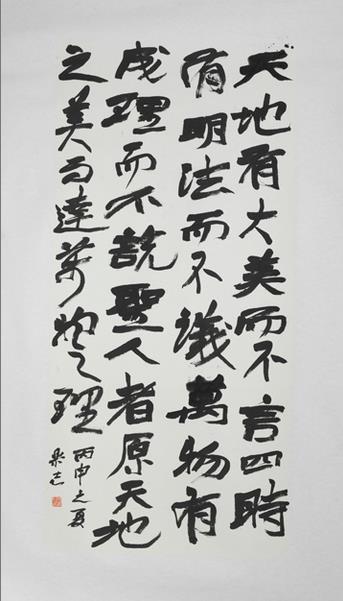 天地有大美而不言四時
有明法而不議萬物有
成理而不説聖人者原天地
之美而達萬物之理
丙申之夏